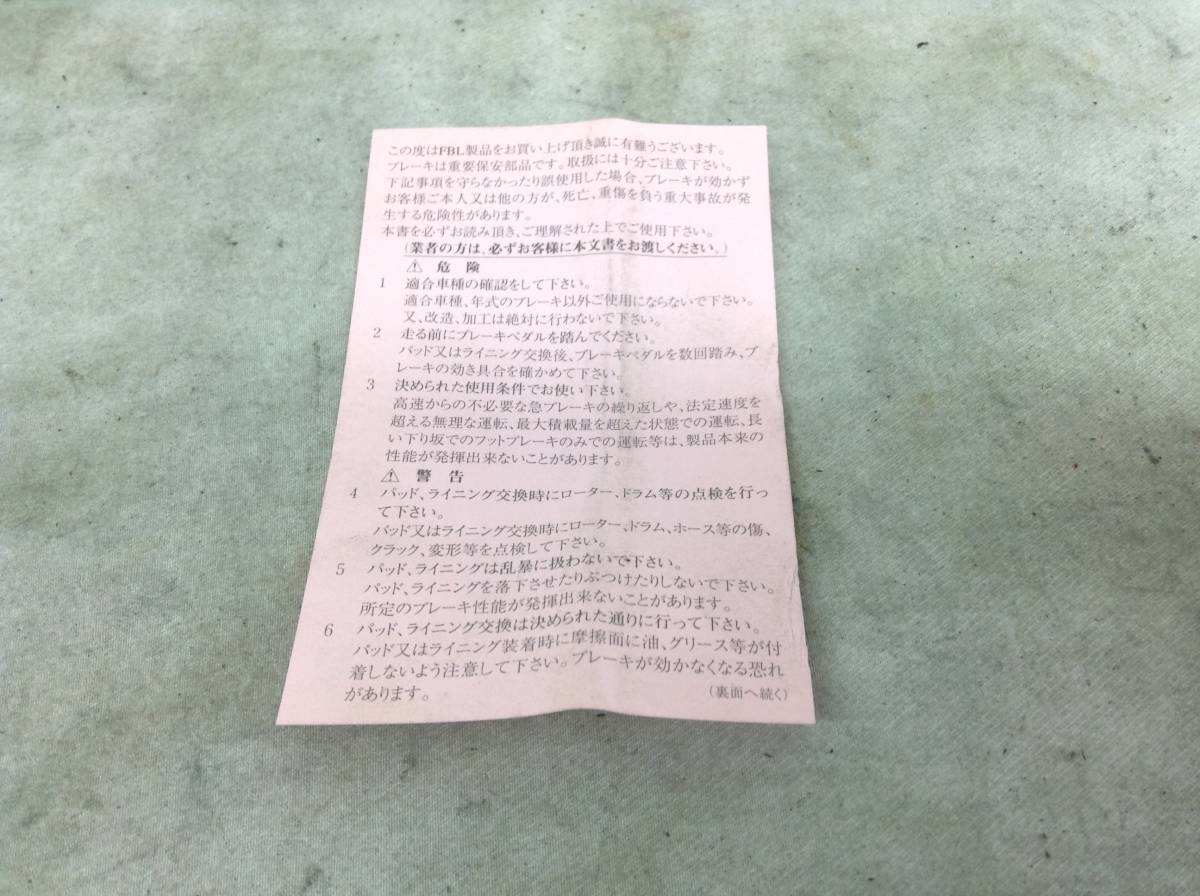 この度はFBL製品をお買い上げ頂き誠に有難うございます。
ブレーキは重要保安部品です。取扱には十分ご注意下さい。
下記事項を守らなかったり誤使用した場合、ブレーキが効かず
お客様ご本人又は他の方が、死亡、重傷を負う重大事故が発
生する危険性があります。
本書を必ずお読み頂き、ご理解された上でご使用下さい。
(業者の方は、必ずお客様に本文書をお渡しください。)
⚠ 危険
1 適合車種の確認をして下さい。
適合車種、年式のブレーキ以外ご使用にならないで下さい。
又、改造、加工は絶対に行わないで下さい。
2 走る前にブレーキペダルを踏んでください。
パッド又はライニング交換後、ブレーキペダルを数回踏み、ブ
レーキの効き具合を確かめて下さい。
3 決められた使用条件でお使い下さい。
高速からの不必要な急ブレーキの繰り返しや、法定速度を
超える無理な運転、最大積載量を超えた状態での運転、長
い下り坂でのフットブレーキのみでの運転等は、製品本来の
性能が発揮出来ないことがあります。
⚠ 警告
4 パッド、ライニング交換時にローター、ドラム等の点検を行っ
て下さい。
パッド又はライニング交換時にローター、ドラム、ホース等の傷、
クラック、変形等を点検して下さい。
5 パッド、ライニングは乱暴に扱わないで下さい。
パッド、ライニングを落下させたりぶつけたりしないで下さい。
所定のブレーキ性能が発揮出来ないことがあります。
6 パッド、ライニング交換は決められた通りに行って下さい。
パッド又はライニング装着時に摩擦面に油、グリース等が付
着しないよう注意して下さい。ブレーキが効かなくなる恐れ
があります。
(裏面へ続く)